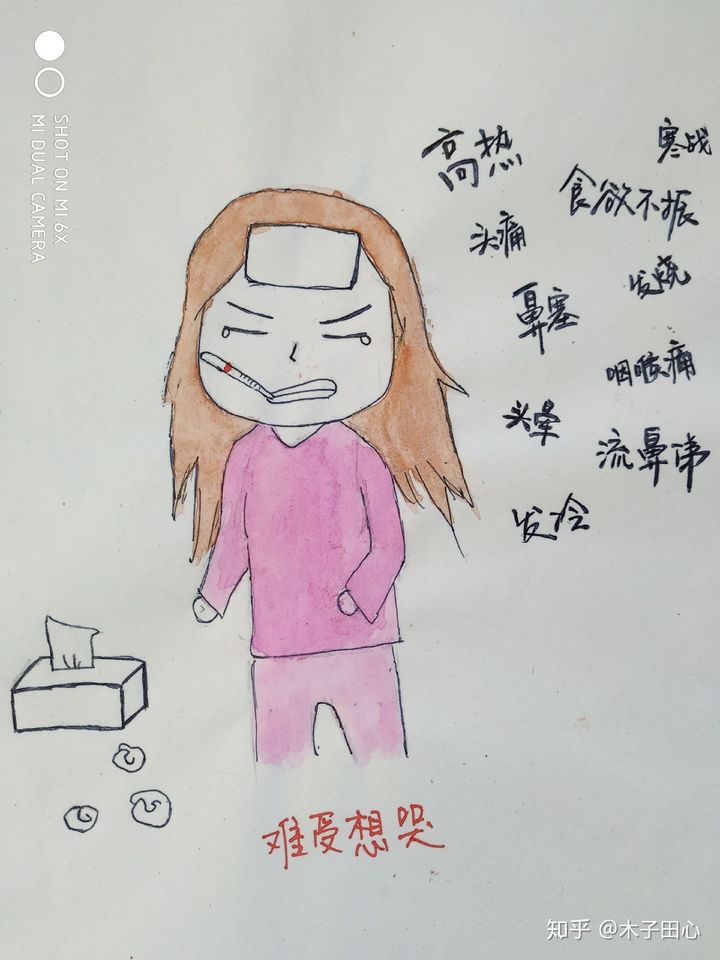 SHOT ON MI 6X
MI DUAL CAMERA
高热
寒战
食欲不振
头痛
发烧
鼻塞
咽喉痛
头晕
流鼻涕
发冷
难受想哭
知乎 @木子田心